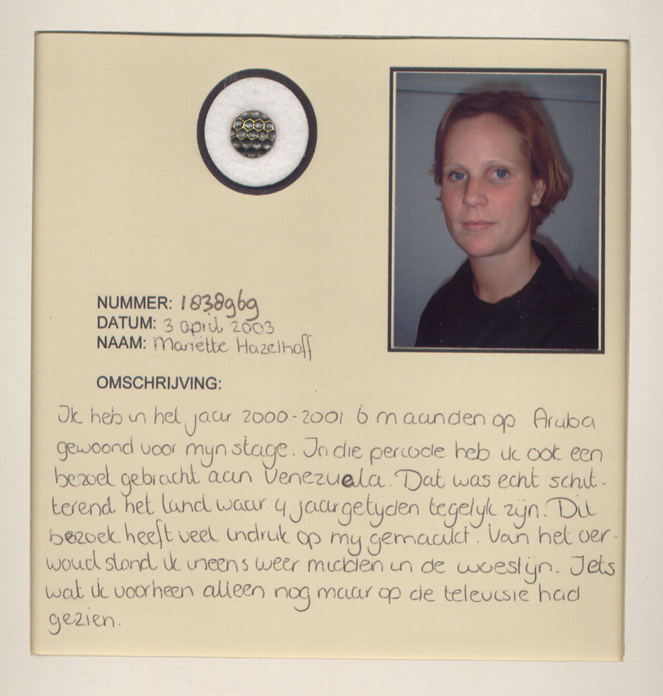 NUMMER: 1838969
DATUM: 3 april 2003
NAAM: Mariëtte Hazelhoff
OMSCHRIJVING:
Ik heb in het jaar 2000-2001 6 maanden op Aruba
gewoond voor mijn stage. In die periode heb ik ook een
bezoek gebracht aan Venezuela. Dat was echt schit-
terend het land waar 4 jaargetijden tegelijk zijn. Dit
bezoek heeft veel indruk op mij gemaakt. Van het oer-
woud stond ik ineens weer midden in de woestijn. Iets
wat ik voorheen alleen nog maar op de televisie had
gezien.